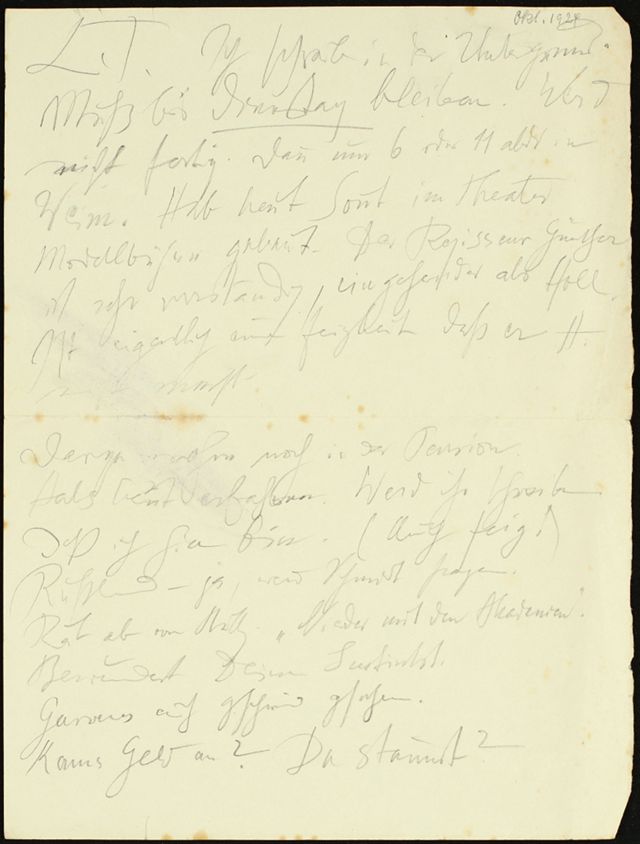 Okt. 1924
L. T. Ich schreibe in der Untergrund.
Muß bis Dienstag bleiben. Werd
nicht fertig. Dann um 6 oder 11 abds in
Weim. Hab heut Sont im Theater
Modellbühne gebaut. Der Regisseur Günther
ist sehr verständig, eingehender als Holl.
Ist eigentlich nur Feigheit daß er H.
nicht macht.
wohn noch in der Pension.
Hab's heut erfahren. Werd ihr schreiben
Daß ich hier bin. (Auch feig!)
Rußland – ja, werd Schmidt fragen.
Rät ab von "Nieder mit den Akademien".
Bewundert Deine
auch gesehen.
Kams Geld an? Da staunst?